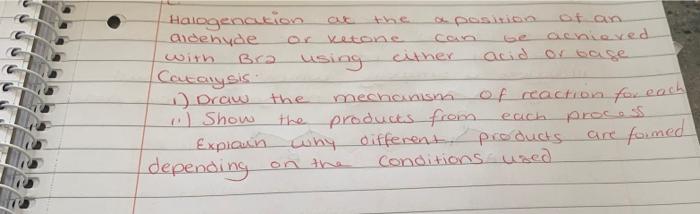 Halogenation at the α position of an
aldehyde or ketone can be achieved
with Br2 using either acid or base
Catalysis.
i) Draw the mechanism of reaction for each
ii) Show the products from each process
Explain why different products are formed
depending on the conditions used